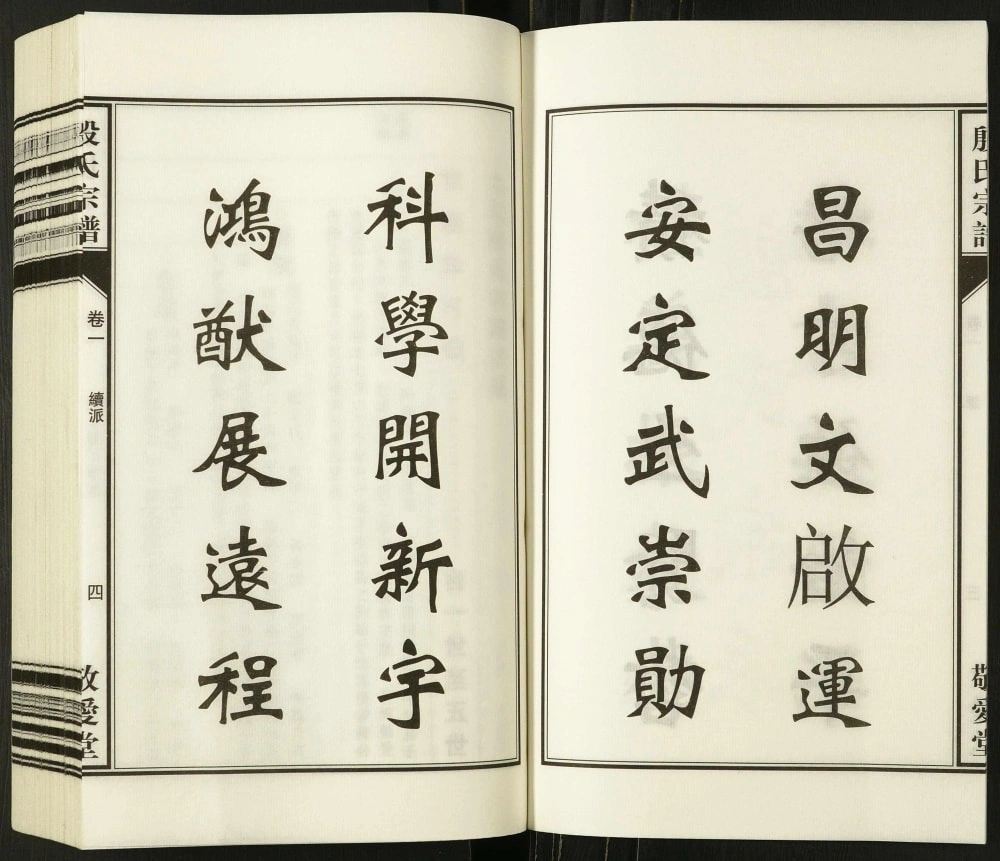 殷氏宗譜
敬愛堂
昌明文啟運
安定武崇勛
科學開新宇
鴻猷展遠程
殷氏宗譜
卷一
續派
四
敬愛堂